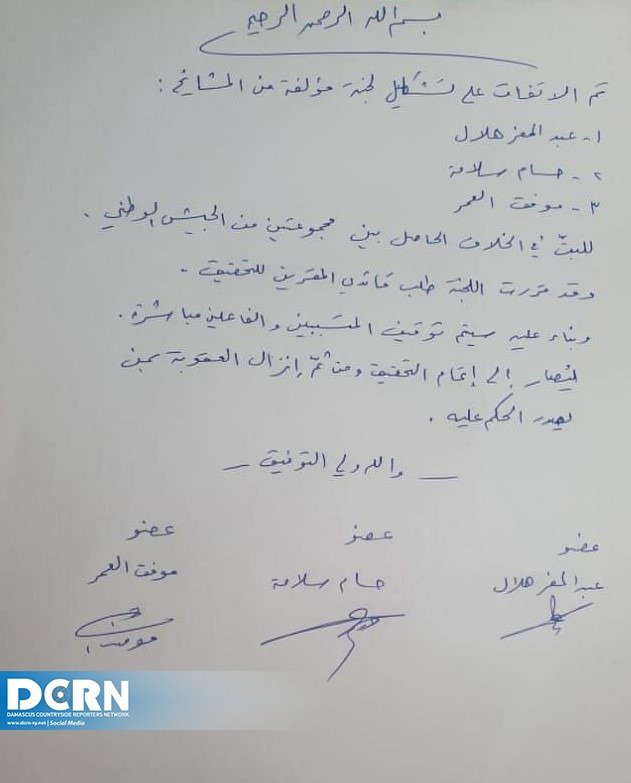 بسم الله الرحمن الرحيم
تم الاتفاق على تشكيل لجنة مؤلفة من المشايخ :
١- عبد المعز هلال
٢- حسام سلامة
٣- موفق العمر
للبتّ في الخلاف الحاصل بين مجموعتين من الجيش الوطني .
وقد قررت اللجنة طلب قائدي المقرين للتحقيق .
وبناء عليه سيتم توقيف المتسببين والفاعلين مباشرة .
ليُصار إلى إتمام التحقيق ومن ثمّ إنزال العقوبة بمن
يصدر الحكم عليه .
- والله ولي التوفيق -
عضو عضو عضو
عبد المعز هلال حسام سلامة موفق العمر
موفق
DCRN
DAMASCUS COUNTRYSIDE REPORTERS NETWORK
www.dcrn-sy.net | Social Media